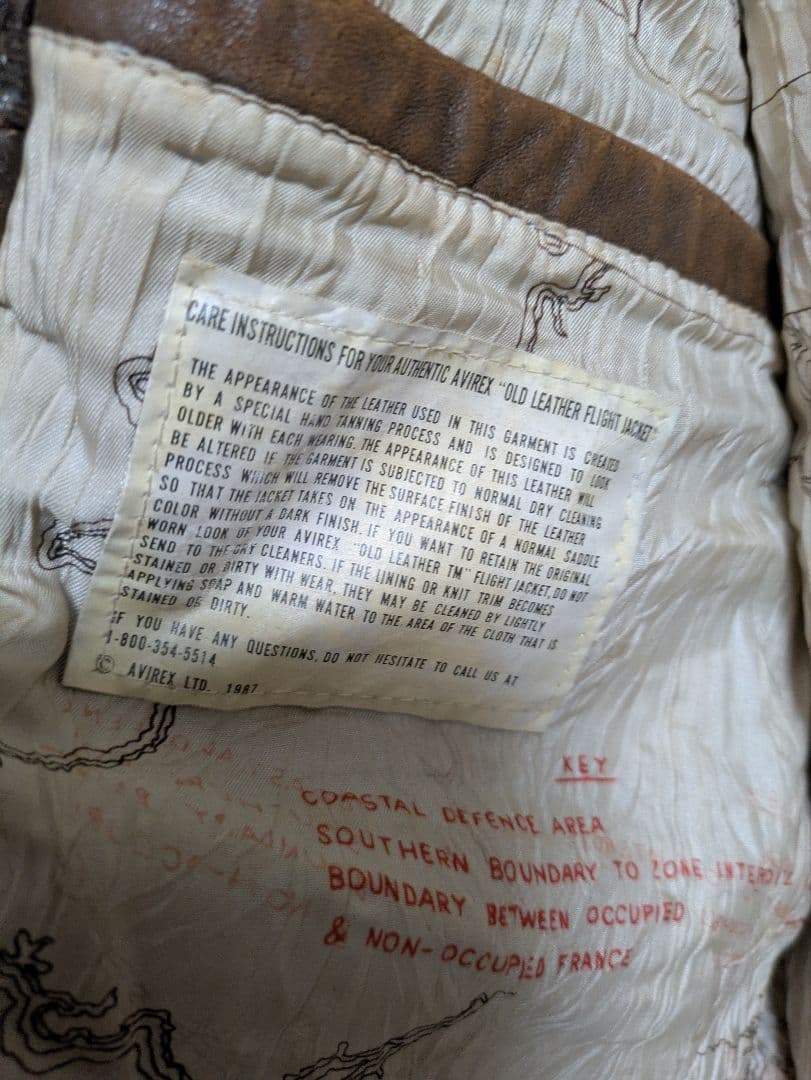 CARE INSTRUCTIONS FOR YOUR AUTHENTIC AVIREX "OLD LEATHER FLIGHT JACKET"
THE APPEARANCE OF THE LEATHER USED IN THIS GARMENT IS CREATED
BY A SPECIAL HAND TANNING PROCESS AND IS DESIGNED TO LOOK
OLDER WITH EACH WEARING. THE APPEARANCE OF THIS LEATHER WILL
BE ALTERED IF THE GARMENT IS SUBJECTED TO NORMAL DRY CLEANING
PROCESS WHICH WILL REMOVE THE SURFACE FINISH OF THE LEATHER
SO THAT THE JACKET TAKES ON THE APPEARANCE OF A NORMAL SADDLE
COLOR WITHOUT A DARK FINISH. IF YOU WANT TO RETAIN THE ORIGINAL
WORN LOOK OF YOUR AVIREX "OLD LEATHER TM" FLIGHT JACKET, DO NOT
SEND TO THE DRY CLEANERS. IF THE LINING OR KNIT TRIM BECOMES
STAINED OR DIRTY WITH WEAR, THEY MAY BE CLEANED BY LIGHTLY
APPLYING SOAP AND WARM WATER TO THE AREA OF THE CLOTH THAT IS
STAINED OR DIRTY.
IF YOU HAVE ANY QUESTIONS, DO NOT HESITATE TO CALL US AT
1-800-354-5514
© AVIREX LTD. 1987
KEY
COASTAL DEFENCE AREA
SOUTHERN BOUNDARY TO ZONE
BOUNDARY BETWEEN OCCUPIED
& NON-OCCUPIED FRANCE